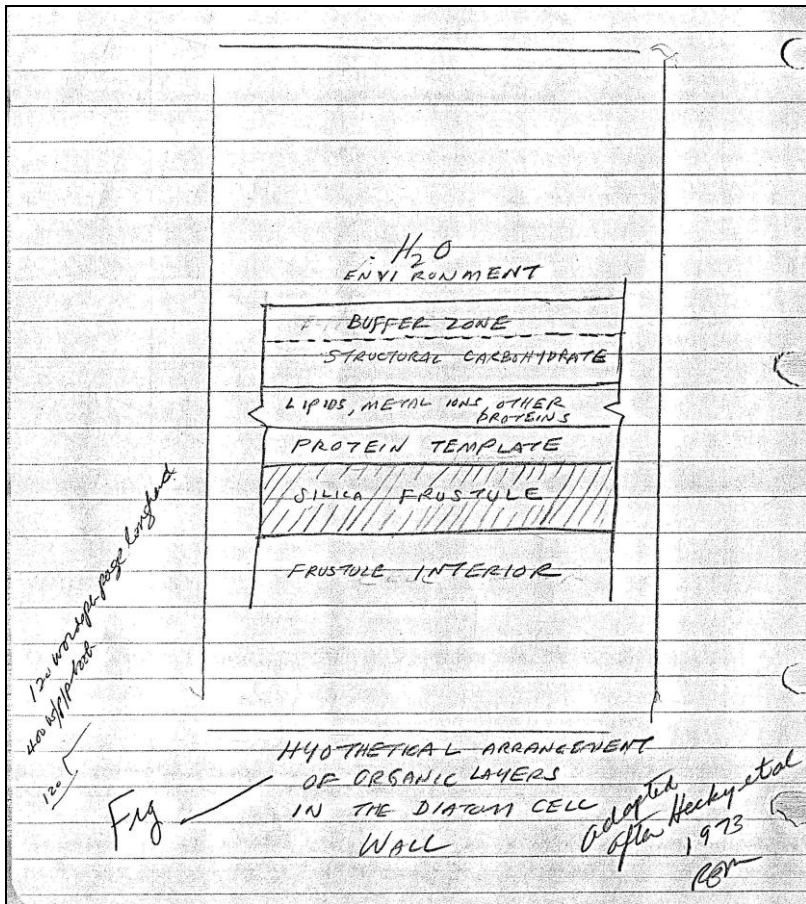 H2O
ENVIRONMENT
BUFFER ZONE
STRUCTURAL CARBOHYDRATE
LIPIDS, METAL IONS, OTHER
PROTEINS
PROTEIN TEMPLATE
SILICA FRUSTULE
FRUSTULE INTERIOR
120 words per page longhand
400
120
Fig
HYOTHETICAL ARRANGEMENT
OF ORGANIC LAYERS
IN THE DIATOM CELL
WALL
Adapted
after Hecky et al
1973